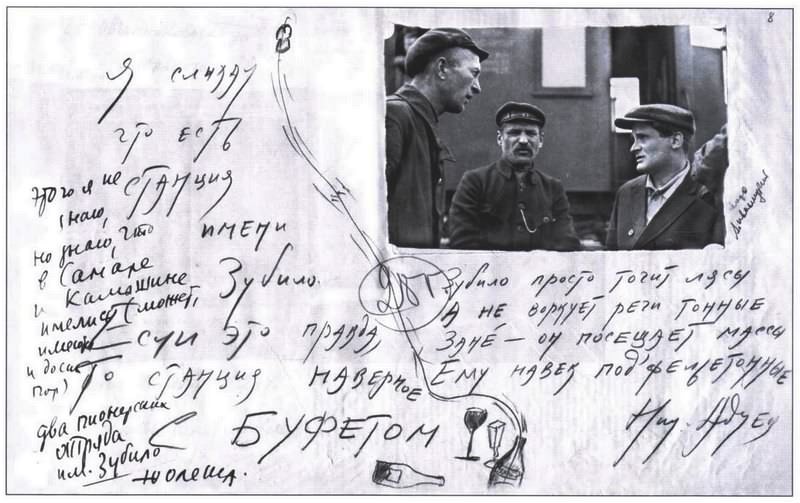 8
В
Я слыхал
что есть
станция
имени
Зубило.
Если это правда
То станция наверное
С БУФЕТОМ
Этого я не
знаю,
но знаю, что
в Самаре
и Камышине
имелись (может,
и до сих
пор)
два пионерских
отряда
им. Зубило
Ю Олеша.
Зубило просто точит лясы
А не воркует речи тонные
Зане́ — он посещает массы
Ему навек под'фельетонные
Ник. Адуев